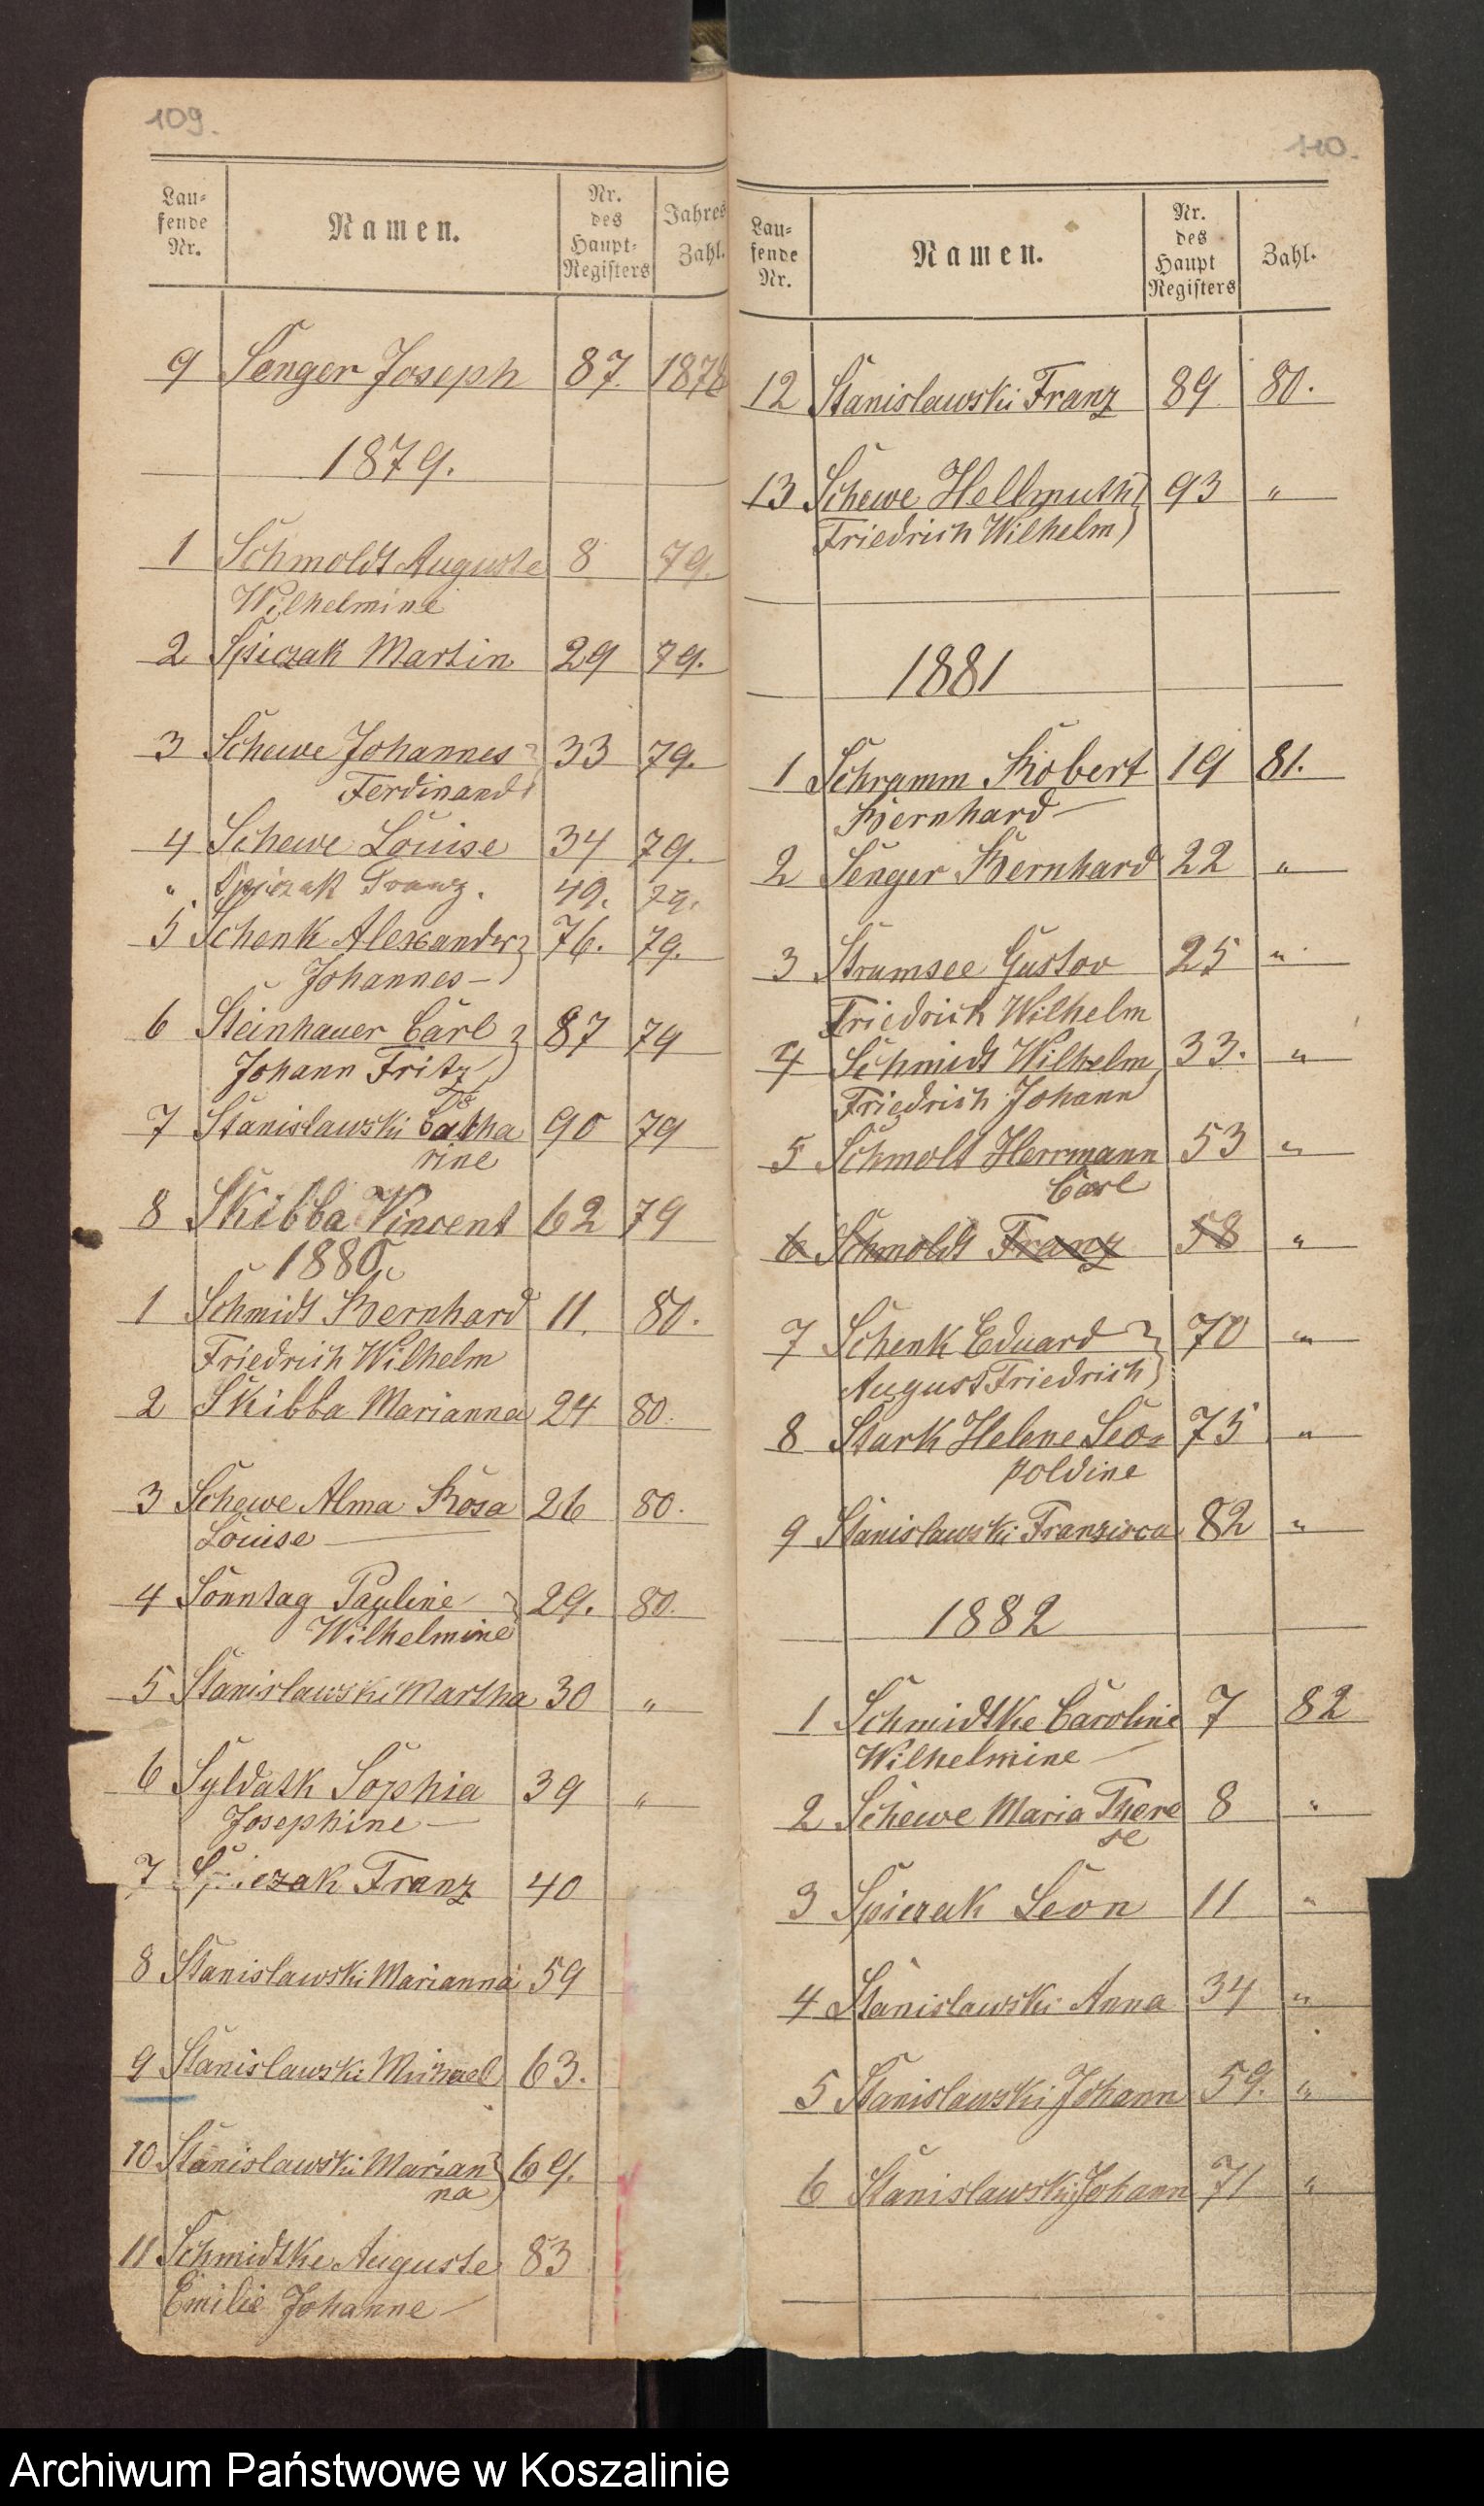 109.
Lau- fende Nr. Namen. Nr. des Haupt- Registers Jahres Zahl.
9 Senger Joseph 87. 1878
1879.
1 Schmoldt Auguste 8 79.
Wilhelmine
2 Spiczak Martin 29 79.
3 Schewe Johannes 33 79.
Ferdinand
4 Schewe Louise 34 79.
" Spiczak Franz. 49. 79.
5 Schenk Alexander 76. 79.
Johannes
6 Steinhauer Carl 87 79
Johann Fritz
7 Stanislawski Catha 90 79
rine
8 Skibba Vincent 62 79
1880.
1 Schmidt Bernhard 11. 80.
Friedrich Wilhelm
2 Skibba Marianna 24 80.
3 Schewe Alma Rosa 26 80.
Louise
4 Sonntag Pauline 29. 80.
Wilhelmine
5 Stanislawski Martha 30 "
6 Syldatk Sophia 39 "
Josephine
7 Spiczak Franz 40
8 Stanislawski Marianna 59
9 Stanislawski Michael 63.
10 Stanislawski Marian 69.
na
11 Schmidtke Auguste 83
Emilie Johanne
110.
Lau- fende Nr. Namen. Nr. des Haupt Registers Zahl.
12 Stanislawski Franz 89 80.
13 Schewe Hellmuth 93 "
Friedrich Wilhelm
1881
1 Schramm Robert 19 81.
Bernhard
2 Senger Bernhard 22 "
3 Strumsee Gustav 25 "
Friedrich Wilhelm
4 Schmidt Wilhelm 33. "
Friedrich Johann
5 Schmolt Herrmann 53 "
Carl
6 Schmoldt Franz 58 "
7 Schenk Eduard 70 "
August Friedrich
8 Stark Helene Leo- 75 "
poldine
9 Stanislawski Franzisca 82 "
1882
1 Schmidtke Caroline 7 82
Wilhelmine
2 Schewe Maria There 8 "
se
3 Spiczak Leon 11 "
4 Stanislawski Anna 34 "
5 Stanislawski Johann 59. "
6 Stanislawski Johann 71 "
Archiwum Państwowe w Koszalinie